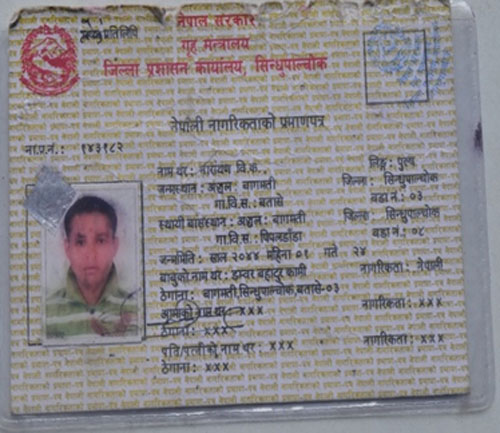 प्रतिलिपि
नेपाल सरकार
गृह मन्त्रालय
जिल्ला प्रशासन कार्यालय, सिन्धुपाल्चोक
नेपाली नागरिकताको प्रमाणपत्र
ना.प्र.नं.: १४३१८२
लिङ्ग: पुरुष
नाम थर: नारायण वि.क.,
जन्मस्थान: अञ्चल: बागमती जिल्ला: सिन्धुपाल्चोक
गा.वि.स.: बतासे वडा नं.: ०३
स्थायी बासस्थान: अञ्चल: बागमती जिल्ला: सिन्धुपाल्चोक
गा.वि.स.: पिपलडाँडा वडा नं.: ०८
जन्ममिति: साल २०४४ महिना ०१ गते २४
बाबुको नाम थर: डम्वर बहादुर कामी नागरिकता: नेपाली
ठेगाना: बागमती,सिन्धुपाल्चोक,बतासे-०३
आमाको नाम थर: xxx नागरिकता: xxx
ठेगाना: xxx
पति/पत्नीको नाम थर: xxx नागरिकता: xxx
ठेगाना: xxx